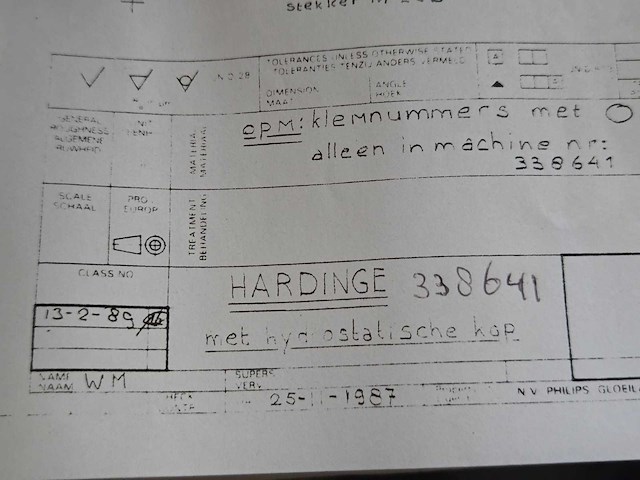 stekker
TOLERANCES UNLESS OTHERWISE STATED
TOLERANTIES TENZIJ ANDERS VERMELD
DIMENSION
MAAT
ANGLE
HOEK
GENERAL
ROUGHNESS
ALGEMENE
RUWHEID
UNIT
EENH.
MATERIAL
MATERIAAL
opm: klemnummers met O
alleen in machine nr:
338641
SCALE
SCHAAL
PROJ.
EUROP.
TREATMENT
BEHANDELING
CLASS NO
HARDINGE 338641
13-2-89
met hydrostatische kop
NAME
NAAM WM
SUPERS.
VERV.
25-11-1987
N.V. PHILIPS GLOEIL